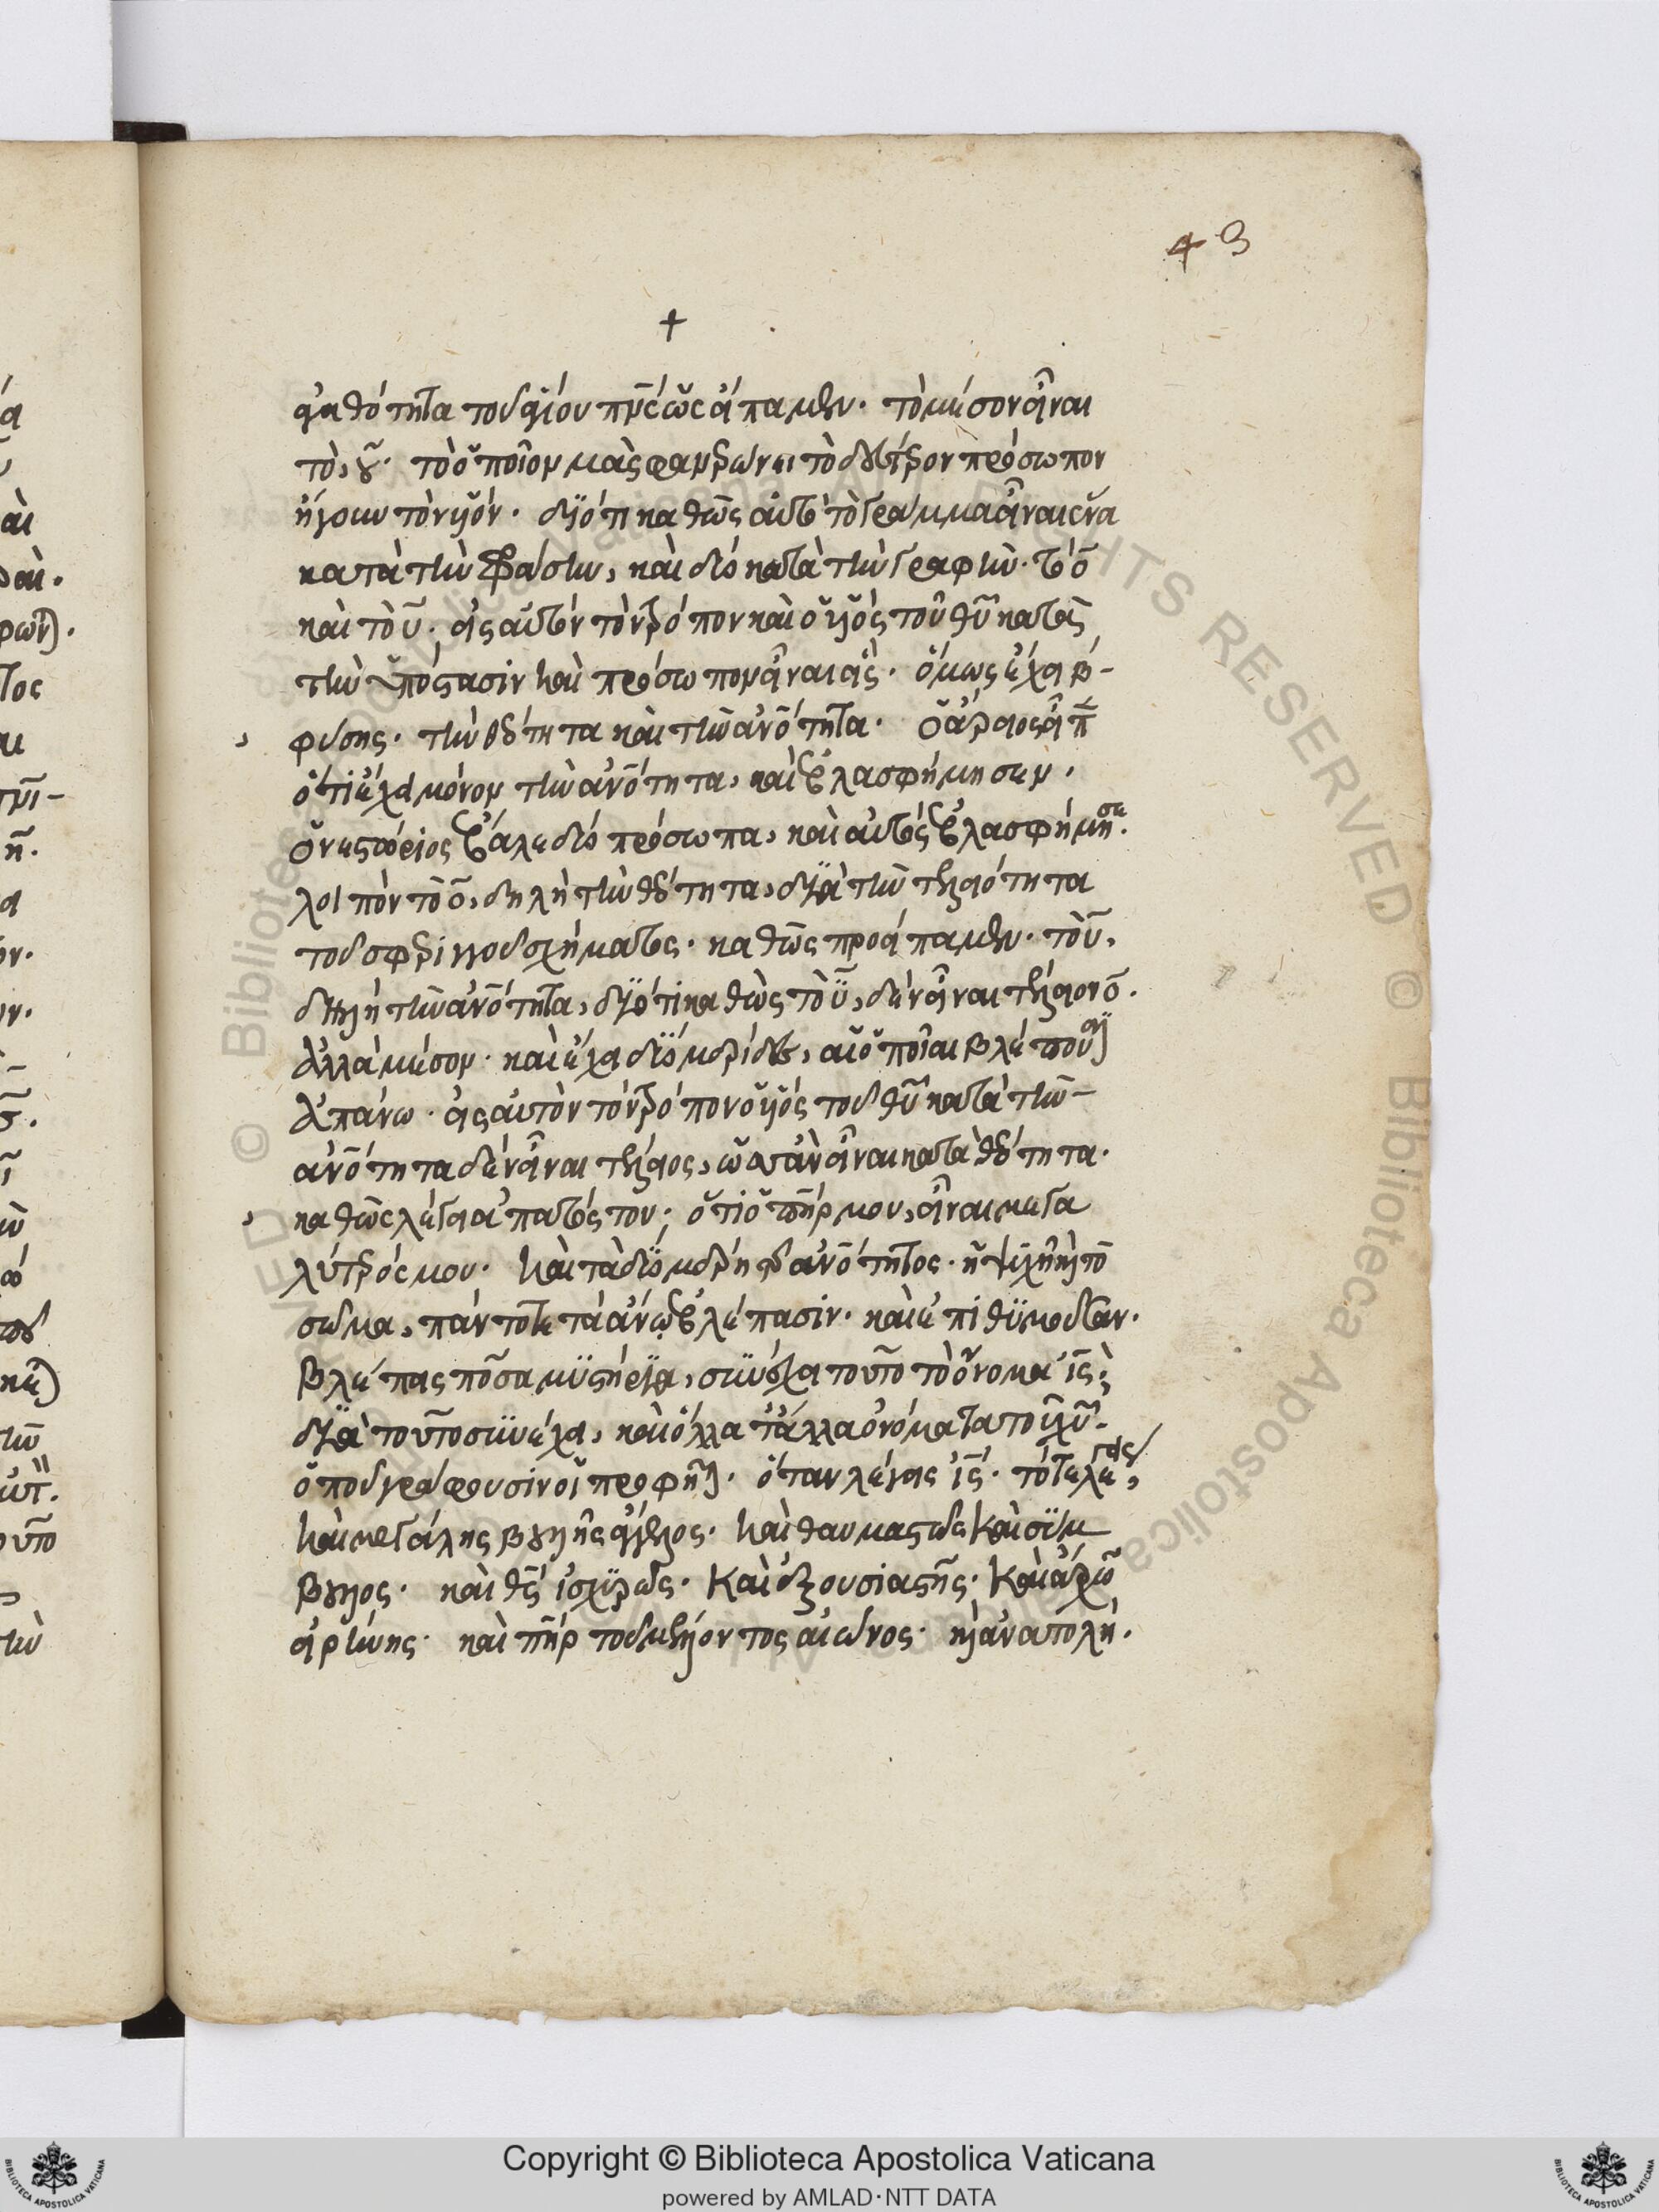 43
+
ἀγαθότητα τοῦ θείου πρς ὡς εἴπαμεν. τὸ μέσον εἶναι
τὸ, ȣ. τὸ ὁποῖον μᾶς φανερώνει τὸ δεύτερον πρόσωπον
ἤγουν τὸν υἱόν. διότι καθὼς αὐτὸ τὸ γράμμα εἶναι ἕνα
κατὰ τὴν φράσιν, καὶ δύο κατὰ τὴν γραφήν. τὸ ο
καὶ τὸ υ. εἰς αὐτὸν τὸν τρόπον καὶ ὁ υἱὸς τοῦ θυ κατὰ
τὴν ὑπόστασιν καὶ πρόσωπον εἶναι εἷς. ὅμως ἔχει β-
φύσης. τὴν θεότητα καὶ τὴν ἀνότητα. ὁ ἄρειος εἶπε
ὅτι ἔχει μόνον τὴν ἀνότητα, καὶ ἐβλασφήμησεν.
ὁ νεστόριος ἔβαλε δύο πρόσωπα, καὶ αὐτὸς ἐβλασφήμησε.
λοιπὸν τὸ ο, δηλῆ τὴν θεότητα, διὰ τὴν τελειότητα
τοῦ σφερικοῦ σχήματος. καθὼς προείπαμεν. τὸ υ,
δηλῆ τὴν ἀνότητα, διότι καθὼς τὸ υ, δὲν εἶναι τέλειον ο.
ἀλλὰ μέσον. καὶ ἔχει δύο μερίδες, αἱ ὁποῖαι βλέπουσι
ἀπάνω. εἰς αὐτὸν τὸν τρόπον ὁ υἱὸς τοῦ θυ κατὰ τὴν-
ἀνότητα δὲν εἶναι τέλειος, ὡσὰν εἶναι κατὰ θεότητα.
καθὼς λέγει ἀπατός του; ὅτι ὁ πηρ μου, εἶναι μεγα
λύτερός μου. καὶ τὰ δύο μέρη τῆς ἀνότητος. ἡ ψυχὴ καὶ τὸ
σῶμα, πάντοτε τὰ ἄνω βλέπασιν. καὶ ἐπιθυμοῦσαν.
βλέπεις πόσα μυστήρια, συνέχει τοῦτο τὸ ὄνομα ις;
διὰ τοῦτο συνέχει, καὶ ὅλλα τἄλλα ὀνόματα τοῦ χυ.
ὁποῦ γράφουσιν οἱ προφῆται. ὅταν λέγεις ις. τότε λέγεις,
καὶ μεγάλης βουλῆς ἄγγελος. καὶ θαυμαστὸς καὶ σύμ
βουλος. καὶ θς ἰσχυρός. καὶ ἐξουσιαστής. καὶ ἄρχων
εἰρήνης. καὶ πηρ τοῦ μέλλοντος αἰῶνος. καὶ ἀνατολή.
Copyright © Biblioteca Apostolica Vaticana
powered by AMLAD·NTT DATA